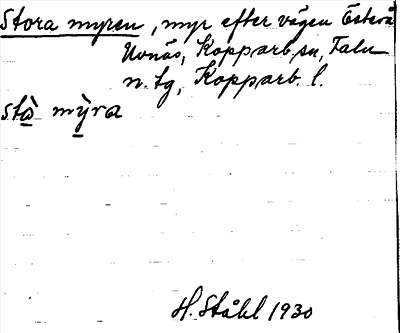 Stora myren, myr efter vägen Österå
Uvnäs, Kopparb. sn, Falu
n. tg, Kopparb. l.
stò mỳra
H. Ståhl 1930